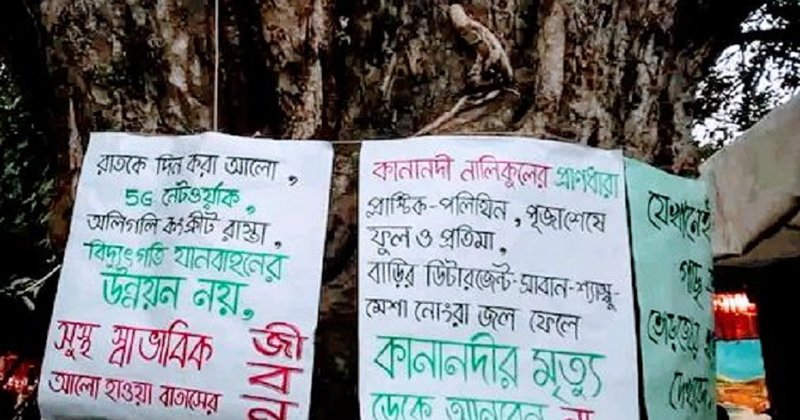 রাতকে দিন করা আলো,
5G নেটওর্য়াক,
অলিগলি কংক্রীট রাস্তা,
বিদ্যুৎগতি যানবাহনের
উন্নয়ন নয়,
সুস্থ স্বাভাবিক
জীবন
আলো হাওয়া বাতাসের
কানানদী নালিকুলের প্রাণধারা
প্লাস্টিক-পলিথিন, পূজাশেষে
ফুল ও প্রতিমা,
বাড়ির ডিটারজেন্ট-সাবান-শ্যাম্পু-
মেশা নোংরা জল ফেলে
কানানদীর মৃত্যু
ডেকে আনবেন না
যেখানেই
গাছ